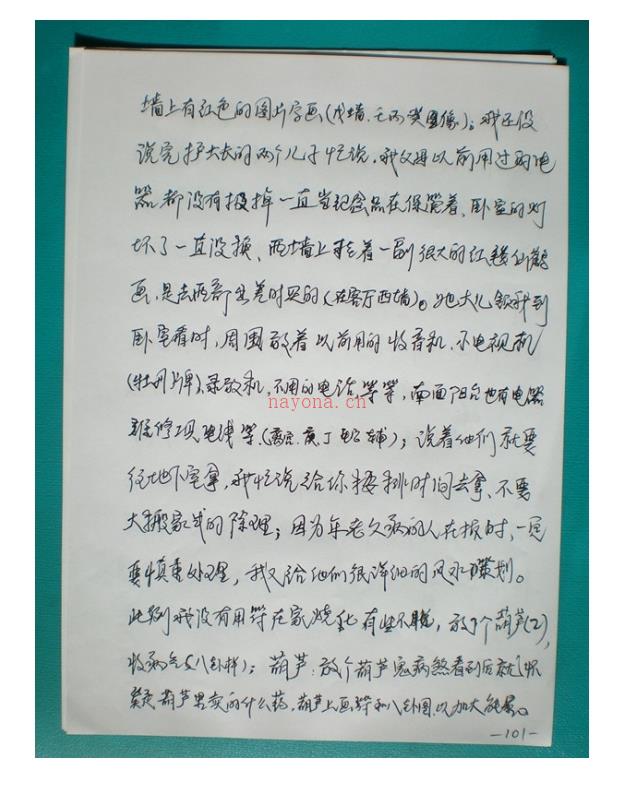 墙上有红色的图片字画(戊墙.壬丙癸图像);我还没
说完护大长的两个儿子忙说,我父母以前用过的电
器都没有扔掉一直当纪念品在保管着、卧室的灯
坏了一直没换、西墙上挂着一副很大的红鹤仙鹤
画,是去西部出差时买的(在客厅西墙)。她大儿领我到
卧室看时,周围放着以前用的收音机.小电视机
(牡丹牌).录放机,不用的电话等等,南面阳台也有电器
维修项电线等(离宫.庚丁 辅);说着他们就要
往地下室拿,我忙说给你安排时间去拿、不要
大搬家式的除理;因为年老久病的人在损时、一定
要慎重处理,我又给他们很详细的风水策划。
此例我没有用符在家烧化有些不脱,放了个葫芦(2),
收病气(八卦样);葫芦:放个葫芦鬼病煞看到后就怀
疑葫芦里卖的什么药.葫芦上画符和八卦图.以加大能量。
nayona.cn
-101-